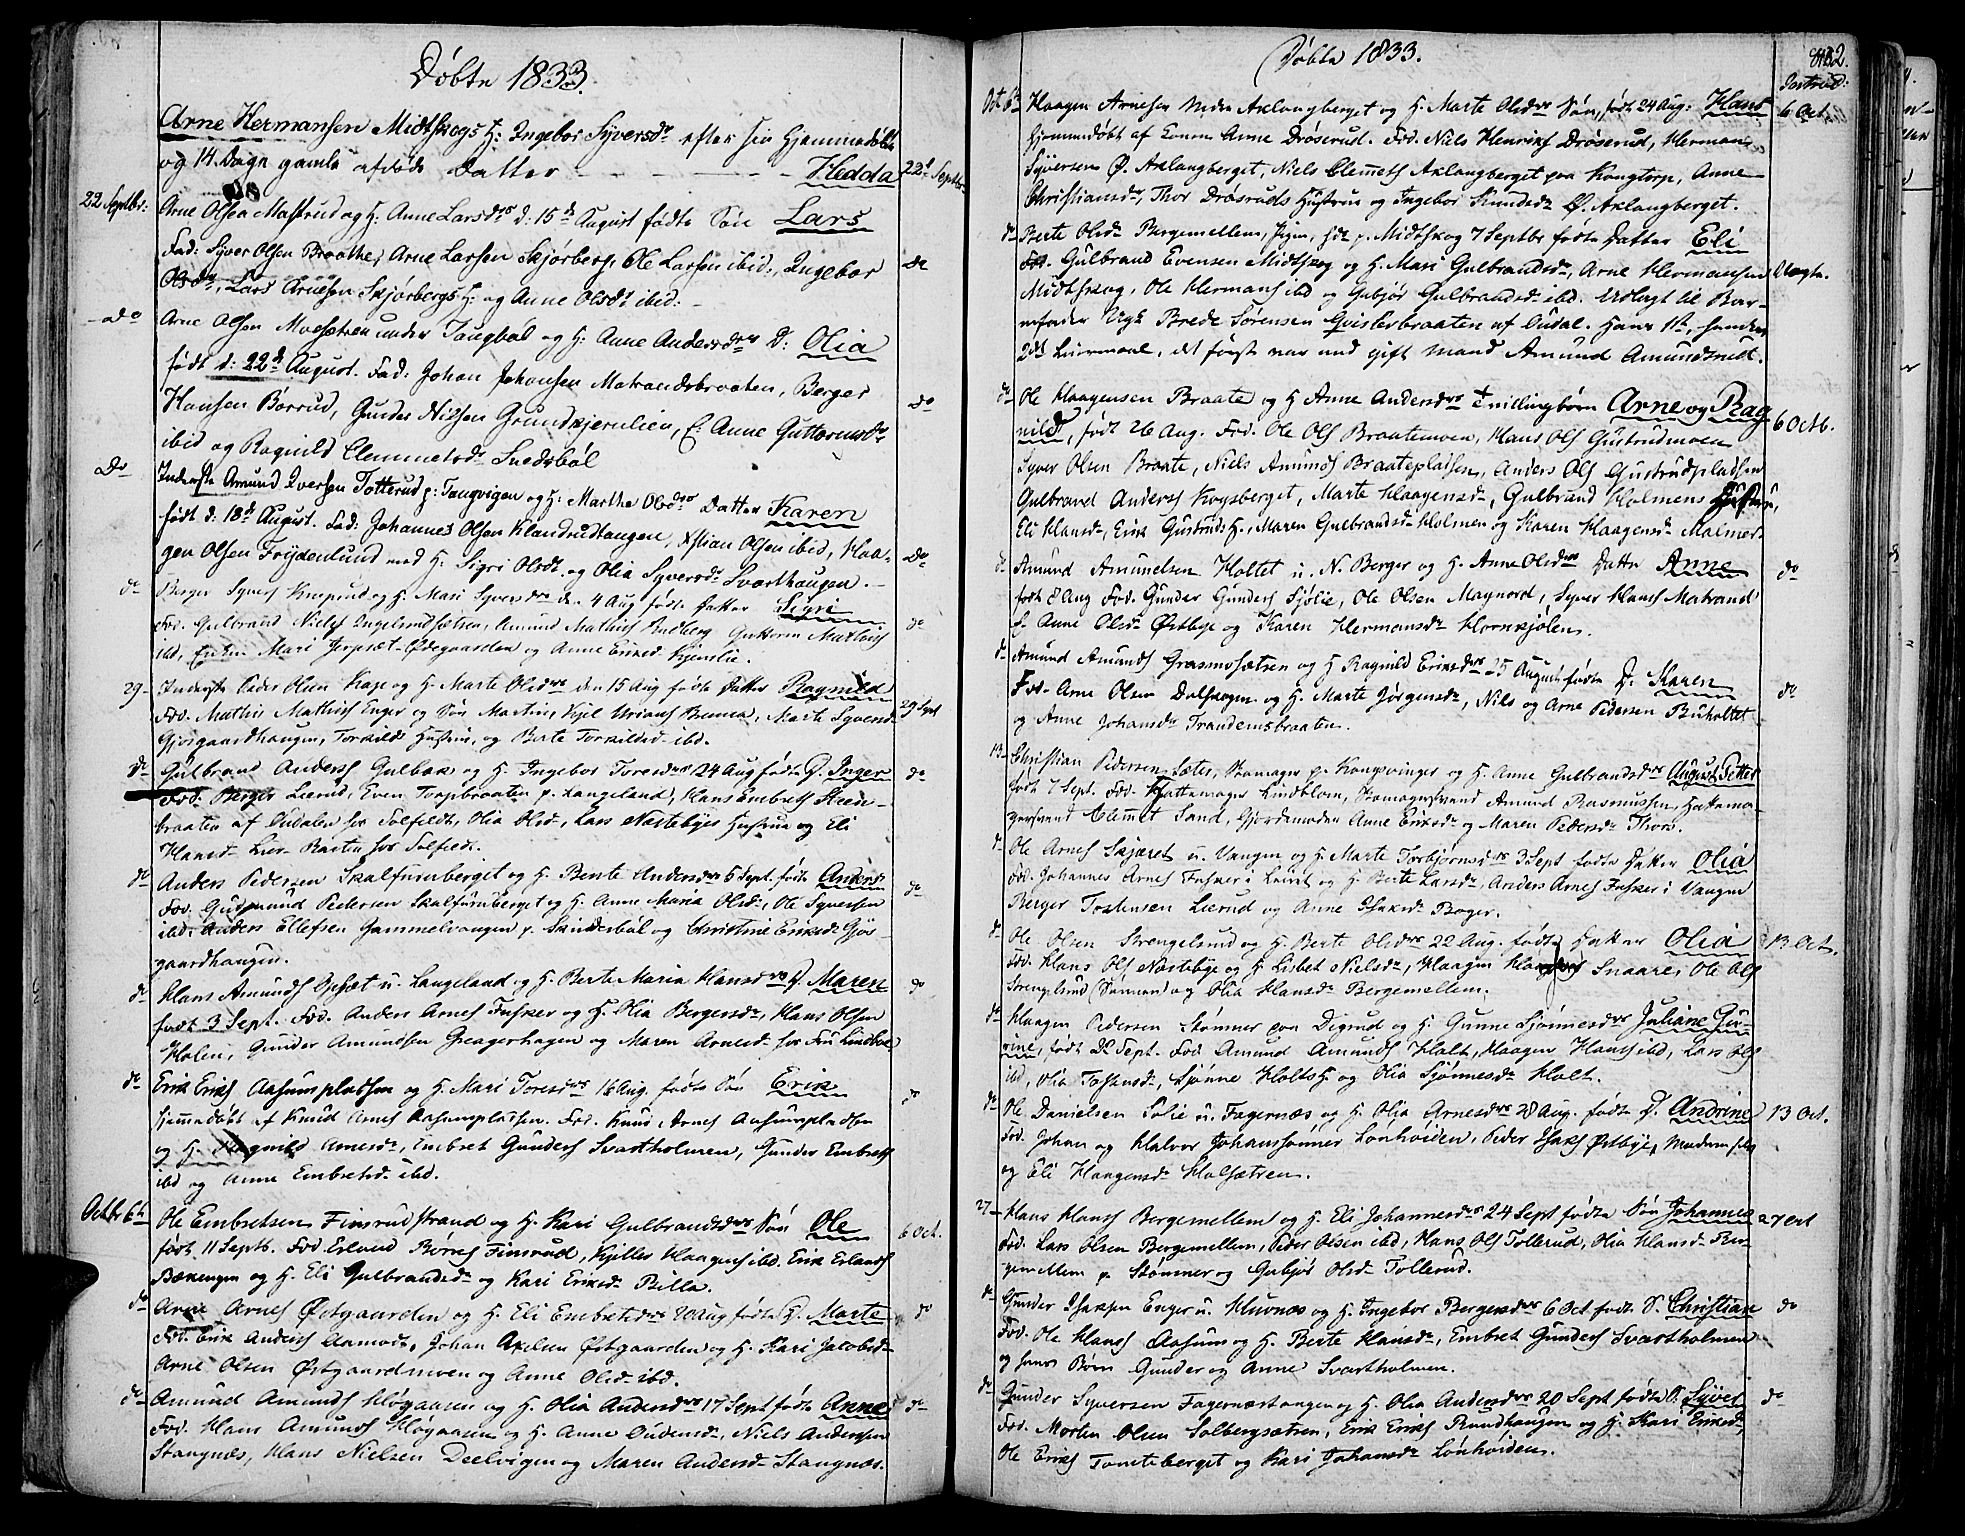 Døbte 1833.
Arne Hermansen Midtskogs H: Ingebor Syversdr efter sin Hjemmedøbte
og 14 Dage gamle afdøde Datter Hedda 22d Septbr
22 Septbr: Arne Olsen Mastrud og H. Anne Larsdrs d: 15d August fødte Søn Lars
Fad: Syver Olsen Braathe, Arne Larsen Skjørberg, Ole Larsen ibid., Ingebor do
Olsdr, Lars Arnesen Skjørbergs H: og Anne Olsdr ibid:
do Arne Olsen Moesætren under Taugbøl og H: Anne Andersdrs D: Olia
født d: 22d August. Fad: Johan Johansen Matrandsbraaten, Berger
Hansen Børrud, Gunder Nilsen Grundkjernlien, E: Anne Guttormsdr do
ibid og Ragnild Clemmetsdr Snedsbøl
Do Inderste Amund Iversen Totterud p: Taugvigen og H: Marthe Olsdrs Datter Karen
født d: 18d August. Fad: Johannes Olsen Klandrudtangen, Xstian Olsen ibid, Haa-
gen Olsen Frydenlund med H: Sigri Olsdr og Olia Syversdr Svarthaugen. do
do Berger Syvers Knaprud og H. Mari Syversdrs den 4 Aug fødte Datter Sigri
Fad. Gulbrand Niels Ingelsrudsætren, Amund Mathis Rudberg Guttorm Mathis do
ibd, Enken Mari Jerpsæt-Ødegaarden og Anne Eriksd Kjenslie.
29 Inderste Peder Olsen Kaje og H. Marte Olsdrs den 15 Aug fødte Datter Ragnild
Fad. Mathis Mathis Enger og Søn Martin, Kjel Brums, Marte Syversd 29 Sept
Gjørgaardhaugen, Torkilds Hustru, og Berte Torkildsd ibd.
do Gulbrand Anders Gulbæk og H. Ingebor Toresdrs 24 Aug fødte D. Inger do
Fad. Berger Lierud, Even Torpbraaten p. Langeland, Hans Embrets Steen-
braaten af Oudalen for Tolfeldt, Olia Olsd, Lars Næstebyes Hustrue og Eli
Hansd Lier-Basten for Tolfeldt.
do Anders Pedersen Skalfurnberget og H. Bente Andersdrs 5 Sept. fødte Anders
Fad. Gudmund Pedersen Skalfurnberget og H. Anne Maria Olsd, Ole Syversen do
ibd. Anders Ellefsen Gammelvangen p. Skinderbøl og Christine Eriksd Gjør-
gaardhaugen.
do Hans Amunds Opsæt u. Langeland og H. Berte Maria Hansdrs D. Maren do
født 3 Sept. Fad. Anders Arnes Fusker og H. Olia Bergersd, Hans Olsen
Holen, Gunder Amundsen Greagerhagen og Maren Arnesd for Fru Lindboe
do Erik Eriks Aasumpladsen og H. Mari Toresdrs 16 Aug. fødte Søn Erik
hjemmedøbt af Knud Arnes Aasumpladsen. Fad. Knud Arnes Aasumpladsen do
og H. Ragnild Arnesd, Embret Gunders Svartholmen, Gunder Embrets
ibd og Anne Embretsd ibd.
Octbr 6te Ole Embretsen Finsrudstrand og H. Kari Gulbrandsdrs Søn Ole
født 11 Septb. Fad Erland Børres Finsrud, Kjelles Haagens ibd. Erik Erlands 6 Oct.
Bækengen og H. Eli Gulbrandsd og Kari Eriksd Billa.
do Arne Arnes Østgaarden og H. Eli Embretsdrs 20 Aug fødte D. Marte do
Fad. Erik Anders Aamodt, Johan Axelsen Østgaarden og H. Kari Jacobsd
Arne Olsen Østgaardmoen og Anne Olsd ibd.
do Amund Amunds Høgaasen og H. Olia Andersdrs 17 Sept fødte Anne do
Fad. Hans Amunds Høgaasen og H. Anne Oudensd, Niels Andersen
Stangnæs, Hans Nielsen Deelvigen og Maren Andersd Stangnæs.
Døbte 1833. 2.
Oct 6te Haagen Arnesen Nedre Aklangberget og H. Marte Olsdrs Søn, født 24 Aug: Hans 6 Oct
hjemmedøbt af Konen Anne Drøserud. Fad. Niels Henriks Drøserud, Herman
Syversen Ø. Aklangberget, Niels Clemets Aklangberget paa Kongtorp, Anne
Christiansd, Thor Drøsruds Hustrue og Ingebor Knudsd Ø. Aklangberget.
do Berte Olsd Bergemellem, Pigen, p. Midtskog 7 Septbr fødte Datter Eli
Fad. Gulbrand Evensen Midtskog og H. Mari Gulbrandsd, Arne Hermansen Uægte
Midtskog, Ole Hermans ibd og Gubjør Gulbrandsd ibd. Udlagt til Bar-
nefader Ugk Brede Sørensen Qvislerbraaten af Oudal. Hans 1st, hendes
2det Leiermaal, det første var med gift Mand Amund Amundsrud.
do Ole Haagensen Braate og H Anne Andersdrs Tvillingbørn Arne og Rag-
nild, født 26 Aug. Fad. Ole Ols Braatemoen, Hans Ols Gustrudmoen 6 Octb.
Syver Olsen Braate, Niels Amunds Braatepladsen, Anders Ols Gustrudpladsen
Gulbrand Anders Kogsberget, Marte Haagensd, Gulbrand Holmens Hustrue,
Eli Hansd, Erik Gustruds H., Maren Gulbrandsd Holmen og Karen Haagensd Malmer.
do Amund Amundsen Holtet u. N. Berger og H. Anne Olsdrs Datter Anne do
født 8 Aug Fad. Gunder Gunders Sjølie, Ole Olsen Maynord, Syver Hans Matrand
H Anne Olsd Østbye og Karen Hermansd Hornkjølen.
do Amund Amunds Grasmosætren og H Ragnild Eriksdrs 25 August fødte D. Karen
Fad. Arne Olsen Dalskogen og H. Marte Jørgensd, Nils og Arne Pedersen Buholtet do
og Anne Johansd Trandemsbraaten.
13 Christian Pedersen Sæter, Skomager p. Kongsvinger og H. Anne Gulbrandsdrs August Petter
født 7 Sept. Fad. Hattemager Lindblom, Skomagersvend Amund Rasmussen, Hattema-
gersvend Clemet Sand, Gjordemoder Anne Eriksd og Maren Pedersd Thors.
do Ole Arnes Skjæret u. Vangen og H. Marte Torbjørnsdrs 3 Sept fødte Datter Olia
Fad. Johannes Arnes Fusker i Leiret og H. Berte Larsd, Anders Arnes Fusker i Vangen
Berger Tostensen Lierud og Anne Isaksd Boger.
do Ole Olsen Strengelsrud og H. Berte Olsdrs 22 Aug. fødte Datter Olia 13 Oct.
Fad. Hans Ols Næstebye og H Lisbet Nielsd, Haagen Snaare, Ole Ols
Strenglsrud (Sønnen) og Olia Hansd Bergemellem.
do Haagen Pedersen Stømner paa Digrud og H. Gunne Sjønnesdrs Juliane Gu-
rine, født 22 Sept. Fad Amund Amunds Holt, Haagen Hans ibd, Lars Ols
ibd, Olia Tostensd, Sjønne Holts H. og Olia Sjønnesd Holt.
do Ole Danielsen Solie u. Fagernæs og H. Olia Arnesdrs 28 Aug. fødte D. Andrine 13 Oct.
Fad. Johan og Halvor Johanssønner Lønhoiden, Peder Isaks Østbye, Moderen selv
og Eli Haagensd Holsætren.
27 Hans Hans Bergemellem og H. Eli Johannesdrs 24 Sept fødte Søn Johannes 27 Oct
Fad. Lars Olsen Bergemellem, Peder Olsen ibd, Hans Ols Tollerud, Olia Hansd Ber-
gemellem p. Stømner og Gubjør Olsd Tollerud.
do Gunder Isaksen Enger u. Huvnæs og H. Ingebor Bergersdrs 6 Oct. født S. Christian do
Fad. Ole Hans Aasum og H. Berte Hansd, Embret Gunders Svartholmen
og hans Børn Gunder og Anne Svartholmen.
do Gunder Syversen Fagernæstangen og H. Olia Andersdrs 20 Sept fødte S. Syver do
Fad. Morten Olsen Solbergsætren, Erik Eriks Rundhaugen og H. Kari Eriksd,
Ole Eriks Tomteberget og Kari Johansd Lønhoiden.